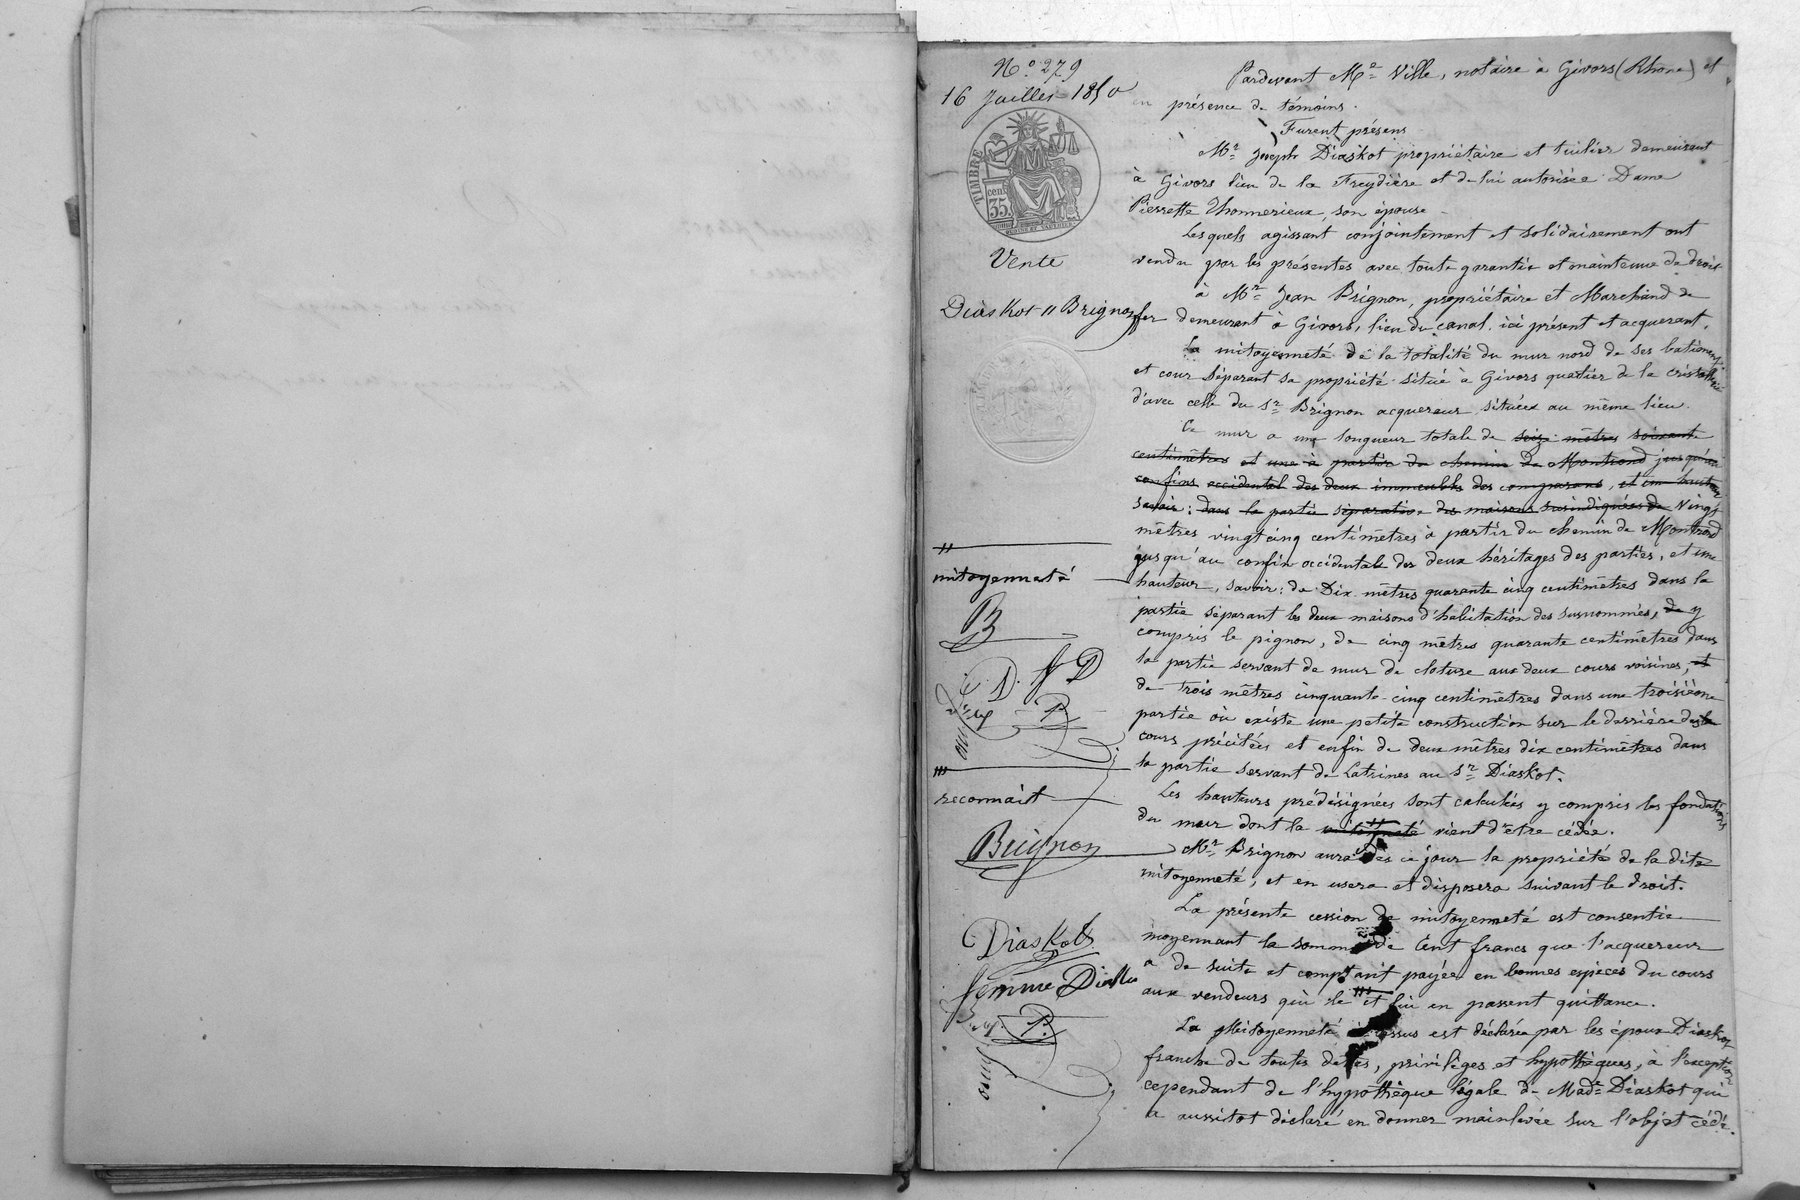 N.° 279
16 Juillet 1850
TIMBRE
cent
35
Vente
Diaskot // Brignon
//
mitoyenneté
B
D. f D
P
///
reconnait
Brignon
Diaskot
femme Diasko
P.
Pardevant Me Ville, notaire à Givors (Rhone) et
en présence de témoins.
Furent présens
Mr Joseph Diaskot propriétaire et tuilier demeurant
à Givors lieu de la Freydière et de lui autorisée Dame
Pierrette Thonnerieux, son épouse
Lesquels agissant conjointement et solidairement ont
vendu par les présentes avec toute garantie et maintenue de droit
à Mr Jean Brignon, propriétaire et Marchand de
fer demeurant à Givors, lieu du canal, ici présent et acquerant,
La mitoyenneté de la totalité du mur nord de ses batiments
et cour séparant sa propriété situé à Givors quartier de la cristallerie
d'avec celle du Sr Brignon acquereur située au même lieu.
Ce mur a une longueur totale de seize mètres soixante
centimètres et une à partir du chemin de Montrond jusqu'au
confins occidental des deux immeubles des comparans, et une hauteur
savoir: dans la partie séparative des maisons susindiquées de vingt
mètres vingt cinq centimètres à partir du chemin de Montrond
jusqu'au confin occidentale des deux héritages des parties, et une
hauteur, savoir: de Dix mètres quarante cinq centimètres dans la
partie séparant les deux maisons d'habitation des susnommés, de y
compris le pignon, de cinq mètres quarante centimètres dans
la partie servant de mur de cloture aux deux cours voisines, et
de trois mètres cinquante-cinq centimètres dans une troisième
partie où existe une petite construction sur le derrière des
cours précitées et enfin de deux mètres dix centimètres dans
la partie servant de Latrines au Sr Diaskot.
Les hauteurs prédésignées sont calculées y compris les fondations
du mur dont la // vient d'etre cédée.
Mr Brignon aura dès ce jour la propriété de la dite
mitoyenneté, et en usera et disposera suivant le droit.
La présente cession de mitoyenneté est consentie
moyennant la somme de Cent francs que l'acquereur
a de suite et comptant payée en bonnes espèces du cours
aux vendeurs qui le /// et lui en passent quittance.
La Mitoyenneté ci dessus est déclarée par les époux Diaskot
franche de toutes dettes, privilèges et hypothèques, à l'exception
cependant de l'hypothèque légale de Made Diaskot qui
a aussitot déclaré en donner mainlevée sur l'objet cédé.